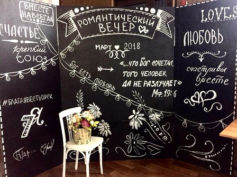 ВМЕСТЕ
НАВСЕГДА
СЧАСТЬЕ
крепкий
союз
#БЛАГАЯВЕСТЬOMSK
7Я
РОМАНТИЧЕСКИЙ
ВЕЧЕР
МАРТ 2018
«...что Бог сочетал,
того человек
да не разлучает»
Мф. 19:6
LOVES
ЛЮБОВЬ
счастливы
вместе